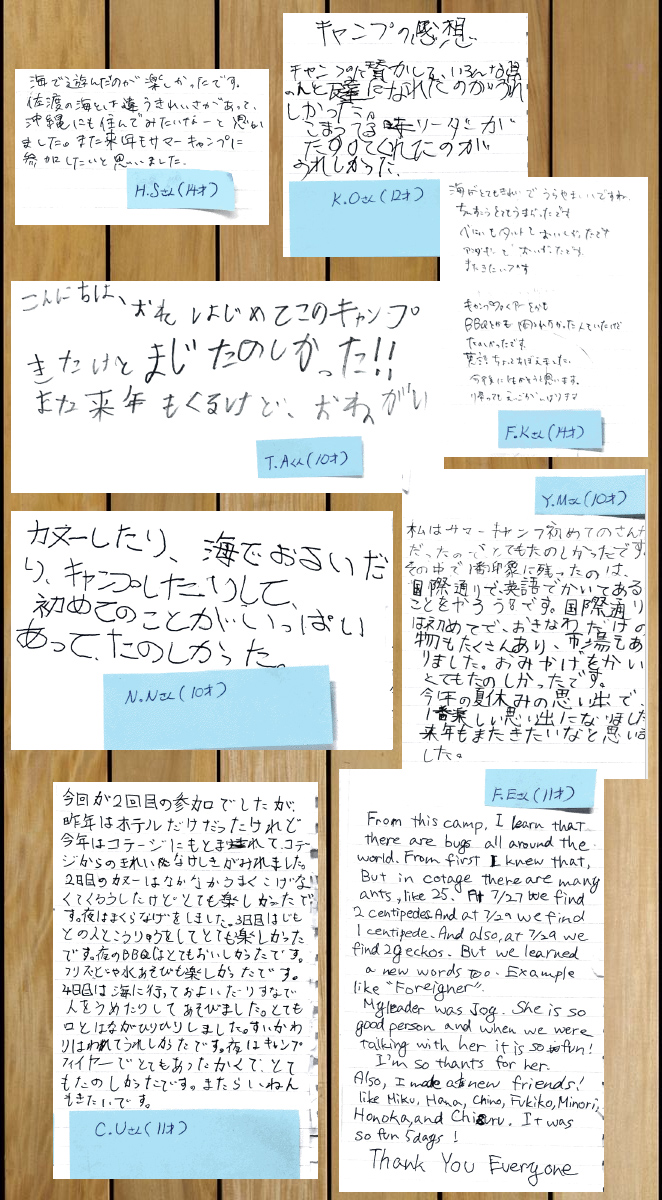 海で遊んだのが楽しかったです。
佐渡の海とは違うきれいさがあって、
沖縄にも住んでみたいなーと思い
ました。また来年もサマーキャンプに
参加したいと思いました。
H.Sさん(14才)
キャンプの感想
キャンプに参加して、いろんな県
の人と友達になれたのがうれ
しかった。
こまってる時リーダーが
たすけてくれたのが
うれしかった。
K.Oさん(12才)
海がとてもきれいでうらやましいですね。
BBQとかも
たのしかったです。
英語ちょっとおぼえました。
F.Kさん(14才)
こんにちは、おれはじめてこのキャンプ
きたけどまじたのしかった!!
また来年もくるけど、おねがい
T.Aくん(10才)
カヌーしたり、海でおよいだ
り、キャンプしたりして、
初めてのことがいっぱい
あって、たのしかった。
N.Nさん(10才)
Y.Mさん(10才)
私はサマーキャンプ初めてのさんか
だったのでとてもたのしかったです。
その中で1番印象に残ったのは、
国際通りで、英語でかいてある
ことをやろうです。国際通り
は初めてで、おきなわだけの
物もたくさんあり、市場もあ
りました。おみやげをかい
とてもたのしかったです。
今年の夏休みの思い出で、
1番楽しい思い出になりました
来年もまたきたいなと思いま
した。
今回が2回目の参加でしたが、
昨年はホテルだけだったけれど
今年はコテージにもとまれて、コテー
ジからのきれいなけしきがみれました。
2日目のカヌーはなかなかうまくこげな
くてくろうしたけどとても楽しかったで
す。夜はまくらなげをしました。3日目はじも
との人とこうりゅうをしてとても楽しかった
です。夜のBBQはとてもおいしかったです。
フリスビーや水あそびも楽しかったです。
4日目は海に行っておよいだりすなで
人をうめたりしてあそびました。とても
口とはながひりひりしました。すいかわ
りはわれてうれしかったです。夜はキャンプ
ファイヤーでとてもあったかくて、とて
もたのしかったです。またらいねん
もきたいです。
C.Uさん(11才)
F.Eさん(11才)
From this camp, I learn that
there are bugs all around the
world. From first I knew that,
But in cotage there are many
ants, like 25. At 7/27 we find
2 centipedes. And at 7/29 we find
1 centipede. And also, at 7/29 we
find 2 geckos. But we learned
a new words too. Example
like "Foreigner".
My leader was Jog. She is so
good person and when we were
talking with her it is so fun!
I'm so thants for her.
Also, I made a new friends!
like Miku, Hana, Chino, Fukiko, Minori,
Honoka, and Chisuru. It was
so fun 5days!
Thank You Everyone